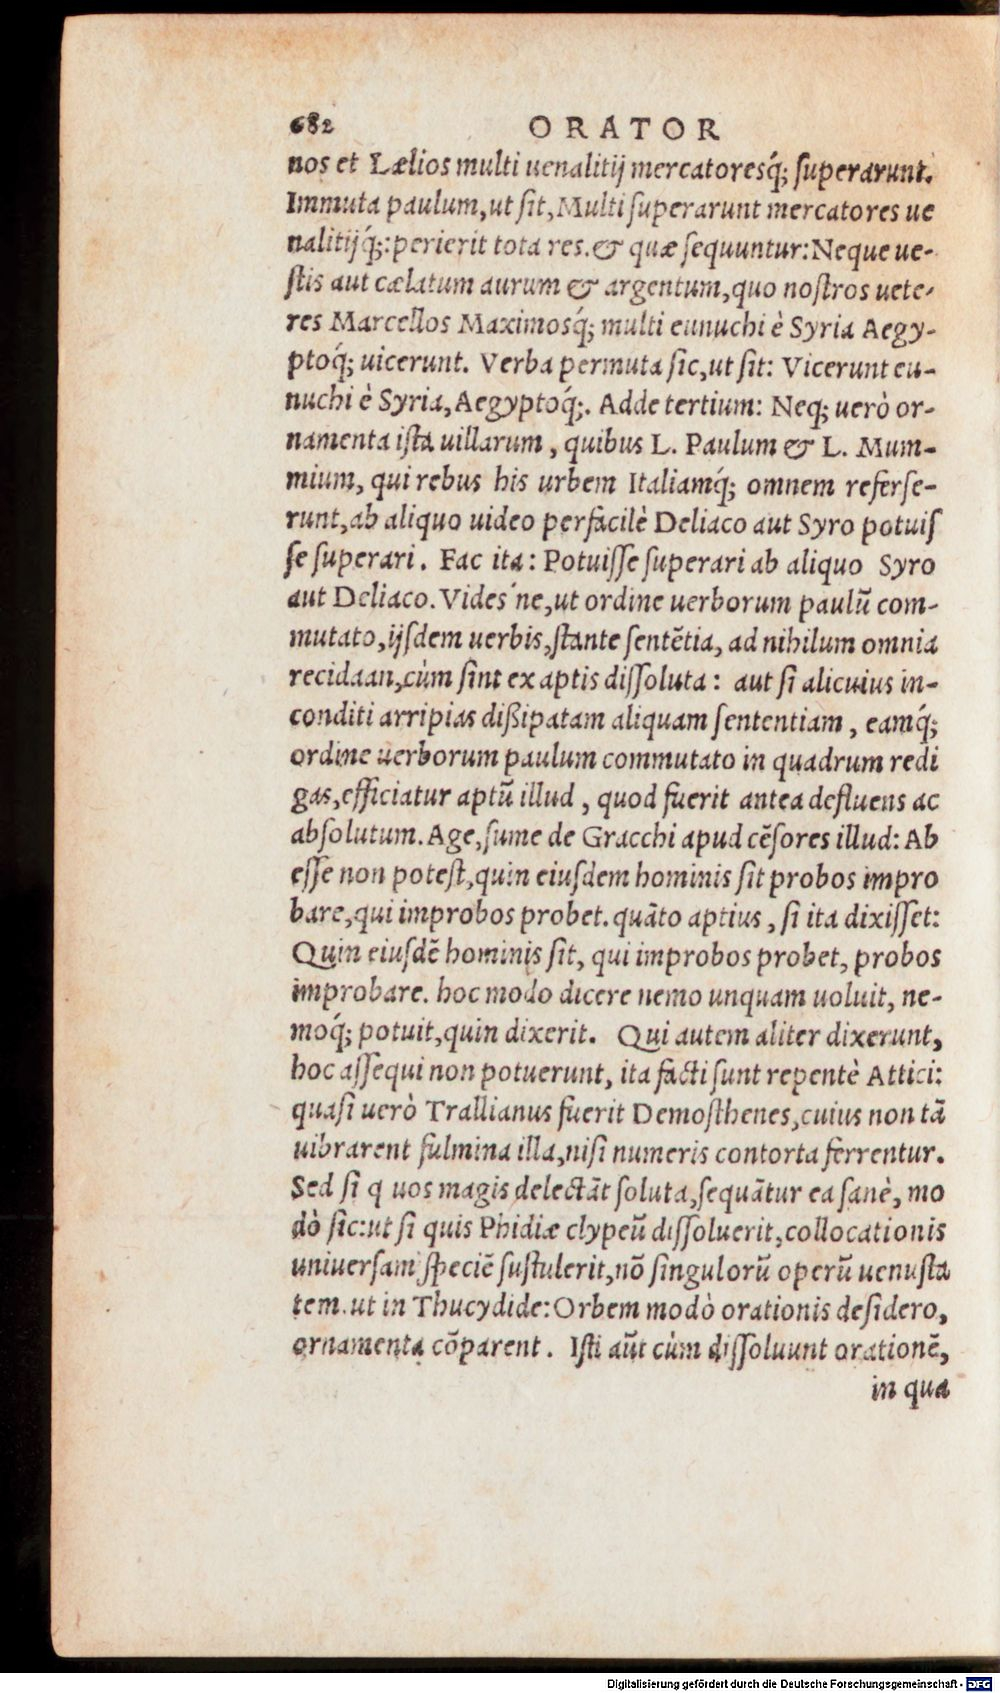 682 ORATOR
nos et Lælios multi uenalitij mercatoresq́; ſuperarunt.
Immuta paulum,ut ſit,Multi ſuperarunt mercatores ue
nalitijq́;:perierit tota res.& quæ ſequuntur:Neque ue-
ſtis aut cælatum aurum & argentum,quo noſtros uete-
res Marcellos Maximosq́; multi eunuchi è Syria Aegy-
ptoq́; uicerunt. Verba permuta ſic,ut ſit: Vicerunt eu-
nuchi è Syria,Aegyptoq́;. Adde tertium: Neq; uerò or-
namenta iſta uillarum, quibus L. Paulum & L. Mum-
mium, qui rebus his urbem Italiamq́; omnem referſe-
runt,ab aliquo uideo perfacilè Deliaco aut Syro potuiſ
ſe ſuperari. Fac ita: Potuiſſe ſuperari ab aliquo Syro
aut Deliaco. Vides ́ne,ut ordine uerborum paulũ com-
mutato,ijſdem uerbis,ſtante ſentẽtia, ad nihilum omnia
recidaan,cùm ſint ex aptis diſſoluta: aut ſi alicuius in-
conditi arripias dißipatam aliquam ſententiam, eamq́;
ordine uerborum paulum commutato in quadrum redi
gas,efficiatur aptũ illud, quod fuerit antea defluens ac
abſolutum. Age,ſume de Gracchi apud cẽſores illud: Ab
eſſe non poteſt,quin eiuſdem hominis ſit probos impro
bare,qui improbos probet. quãto aptius, ſi ita dixiſſet:
Quin eiuſdẽ hominis ſit, qui improbos probet, probos
improbare. hoc modo dicere nemo unquam uoluit, ne-
moq́; potuit,quin dixerit. Qui autem aliter dixerunt,
hoc aſſequi non potuerunt, ita facti ſunt repentè Attici:
quaſi uerò Trallianus fuerit Demoſthenes,cuius non tã
uibrarent fulmina illa,niſi numeris contorta ferrentur.
Sed ſi q uos magis delectãt ſoluta,ſequãtur ea ſanè, mo
dò ſic:ut ſi quis Phidiæ clypeũ diſſoluerit,collocationis
uniuerſam ſpeciẽ ſuſtulerit,nõ ſingulorũ operũ uenuſta
tem.ut in Thucydide:Orbem modò orationis deſidero,
ornamenta cõparent. Iſti aũt cùm diſſoluunt orationẽ,
in qua
Digitalisierung gefördert durch die Deutsche Forschungsgemeinschaft - DFG